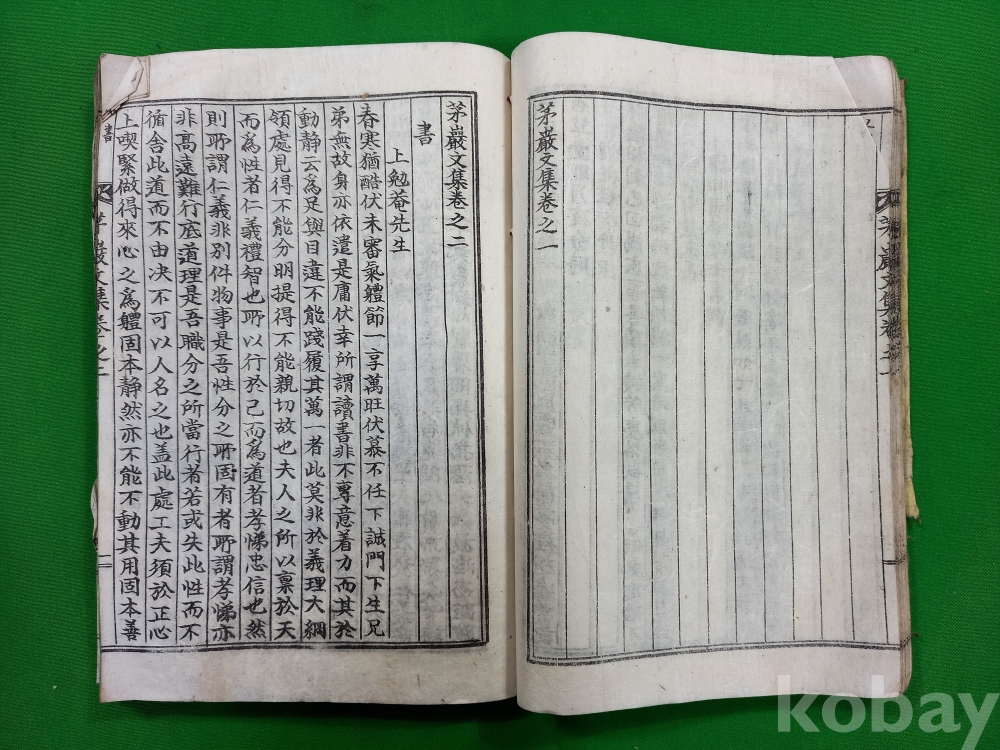 茅巖文集卷之一
茅巖文集卷之二
書
上勉菴先生
春寒猶酷伏未審氣軆節一享萬旺伏慕不任下誠門下生兄
弟無故身亦依遣是庸伏幸所謂讀書非不專意着力而其於
動静云爲足與目違不能踐履其萬一者此莫非於義理大綱
領處見得不能分明提得不能親切故也夫人之所以禀於天
而爲性者仁義禮智也所以行於己而爲道者孝悌忠信也然
則所謂仁義非别件物事是吾性分之所固有者所謂孝悌亦
非高遠難行底道理是吾職分之所當行者若或失此性而不
循舍此道而不由决不可以人名之也盖此處工夫須於正心
上喫緊做得來心之爲軆固本静然亦不能不動其用固本善
書
茅巖文集卷之二
二
kobay